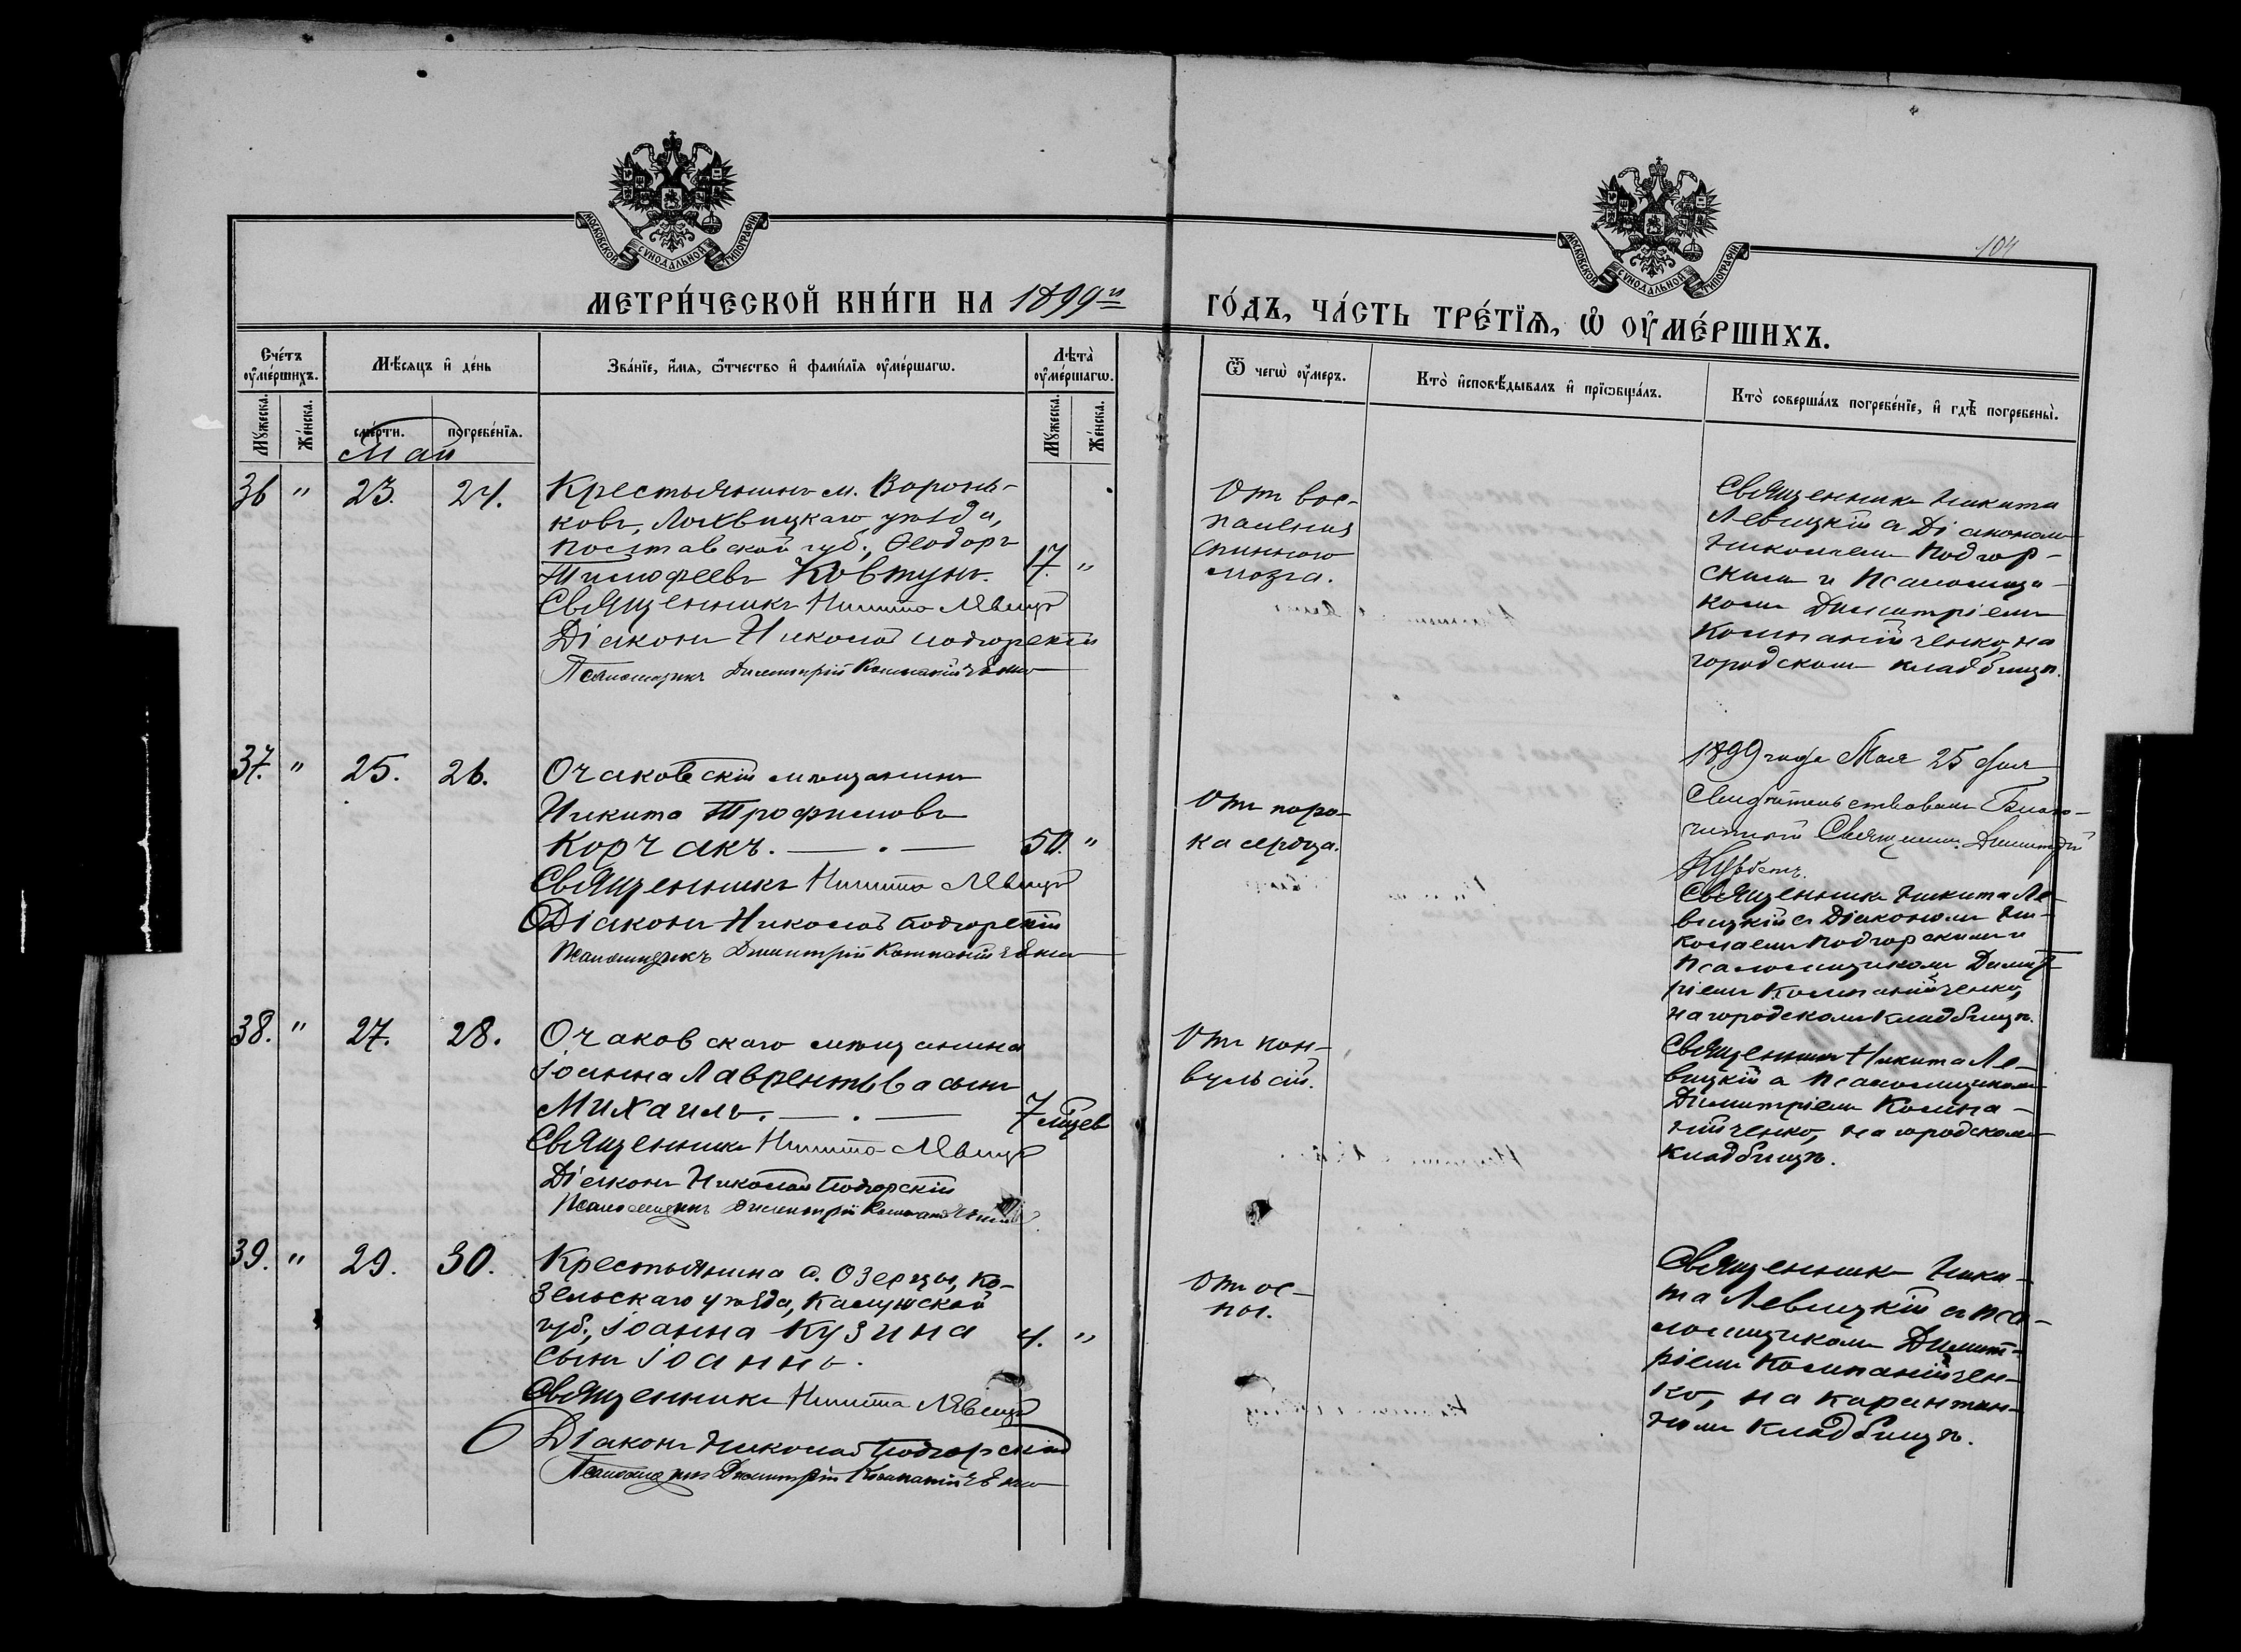 МОСКОВСКОЙ СѴНОДАЛЬНОЙ ТИПОГРАФІИ
МОСКОВСКОЙ СѴНОДАЛЬНОЙ ТИПОГРАФІИ
104
МЕТРИ́ЧЕСКОЙ КНИ́ГИ НА 1899й
ГО́ДЪ, ЧА́СТЬ ТРЕ́ТЇѦ, Ѡ ОУМЕ́РШИХЪ.
Сче́тъ оумершихъ.
Мѣ́сяцъ и де́нь
Зва́нїе, и́мя, ѻ́тчество и фами́лїя оуме́ршагѡ.
Лѣта̀ оуме́ршагѡ.
Ѿ чегѡ̀ оу́меръ.
Кто̀ и҆сповѣ́дывалъ и҆ прїѡбща́лъ.
Кто̀ соверша́лъ погребе́нїе, и҆ гдѣ̀ погребены̀.
Мꙋжеска.
Же́нска.
сме́рти.
погребе́нїя.
Мꙋжеска.
Же́нска.
Май
36 " 23. 24.
Крестьянинъ м. Воронь-
ковъ, Лохвицкаго уѣзда,
Полтавской губ., Ѳеодоръ
Тимофеевъ Ковтунъ. 17. "
Священникъ Никита Левицк
Діаконъ Николай Подгорскій
Псаломщикъ Димитрій Компанійченко
Отъ вос-
паленія
спинного
мозга.
Священникъ Никита
Левицкій съ Діакономъ
Николаемъ Подгор-
скимъ и Псаломщи-
комъ Димитріемъ
Компанійченко, на
городскомъ кладбищѣ.
37. " 25. 26.
Очаковскій мѣщанинъ
Никита Трофимовъ
Корчакъ. 50. "
Священникъ Никита Левицк
Діаконъ Николай Подгорскій
Псаломщикъ Димитрій Компанійченко
Отъ поро-
ка сердца.
1899 года Мая 25 дня
Свидѣтельствовалъ Благо-
чинный Священн. Димитрій
Священникъ Никита Ле-
вицкій съ Діакономъ Ни-
колаемъ Подгорскимъ и
Псаломщикомъ Димит-
ріемъ Компанійченко,
на городскомъ кладбищѣ.
38. " 27. 28.
Очаковскаго мѣщанина
Іоанна Лаврентьева сынъ
Михаилъ. 7 мцев
Священникъ Никита Левицк
Діаконъ Николай Подгорскій
Псаломщикъ Димитрій Компанійченко
Отъ кон-
вульсій.
Священникъ Никита Ле-
вицкій съ Псаломщикомъ
Димитріемъ Компа-
нійченко, на городскомъ
кладбищѣ.
39. " 29. 30.
Крестьянина с. Озерцы, Ко-
зельскаго уѣзда, Калужской
губ., Іоанна Кузина 4. "
сынъ Іоаннъ.
Священникъ Никита Левицк
Діаконъ Николай Подгорскій
Псаломщикъ Димитрій Компанійченко
Отъ ос-
пы.
Священникъ Ники-
та Левицкій съ Пса-
ломщикомъ Димит-
ріемъ Компанійчен-
ко, на карантин-
номъ кладбищѣ.